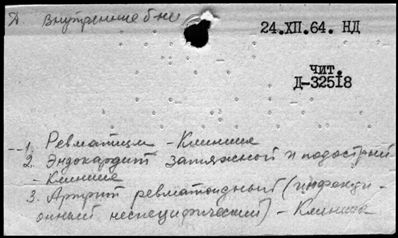 Внутренние б-ни
24.XII.64. НД
чит.
Д-32518
1. Ревматизм - Клиника
2. Эндокардит затяжной и подострый
- Клиника
3. Артрит ревматоидный (инфекци-
онный неспецифический) - Клиника